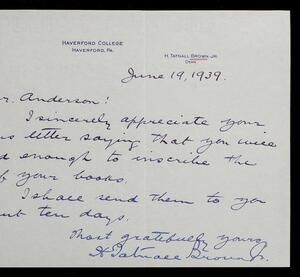 HAVERFORD COLLEGE
HAVERFORD, PA.
H. TATNALL BROWN, JR.
DEAN
June 19, 1939.
r. Anderson:
I sincerely appreciate your
s letter saying that you will
d enough to inscribe the
f your books.
I shall send them to you
ut ten days.
Most gratefully yours,
H. Tatnall Brown Jr.